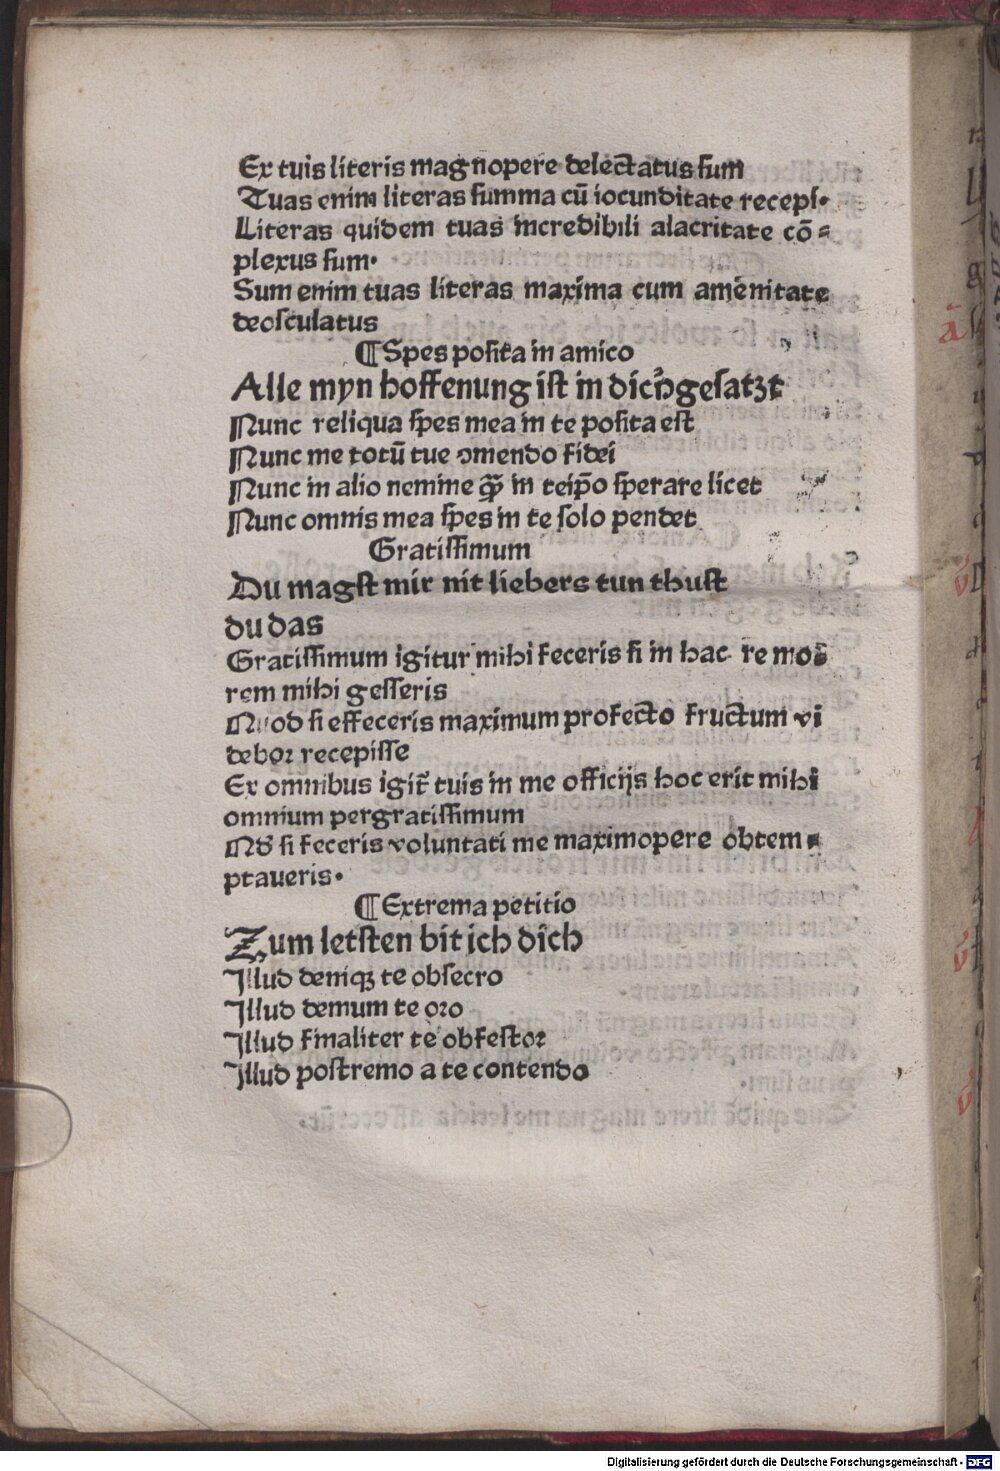 Ex tuis literis magnopere delectatus sum
Tuas enim literas summa cū iocunditate recepi.
Literas quidem tuas incredibili alacritate cō⸗
plexus sum.
Sum enim tuas literas maxima cum amenitate
deosculatus
¶ Spes posita in amico
Alle myn hoffenung ist in dich gesatzt
Nunc reliqua spes mea in te posita est
Nunc me totū tue ꝯmendo fidei
Nunc in alio nemine qꝫ̄ in teip̄o sperare licet
Nunc omnis mea spes in te solo pendet
Gratissimum
Du magst mir nit liebers tun thust
du das
Gratissimum igitur mihi feceris si in hac re mo⸗
rem mihi gesseris
Quod si effeceris maximum profecto fructum vi
debor recepisse
Ex omnibus igit̄ tuis in me officijs hoc erit mihi
omnium pergratissimum
si feceris voluntati me maximopere obtem⸗
ptaveris.
¶ Extrema petitio
Zum letsten bit ich dich
Illud deniqꝫ te obsecro
Illud demum te oro
Illud finaliter te obfestor
Illud postremo a te contendo
Digitalisierung gefördert durch die Deutsche Forschungsgemeinschaft - DFG